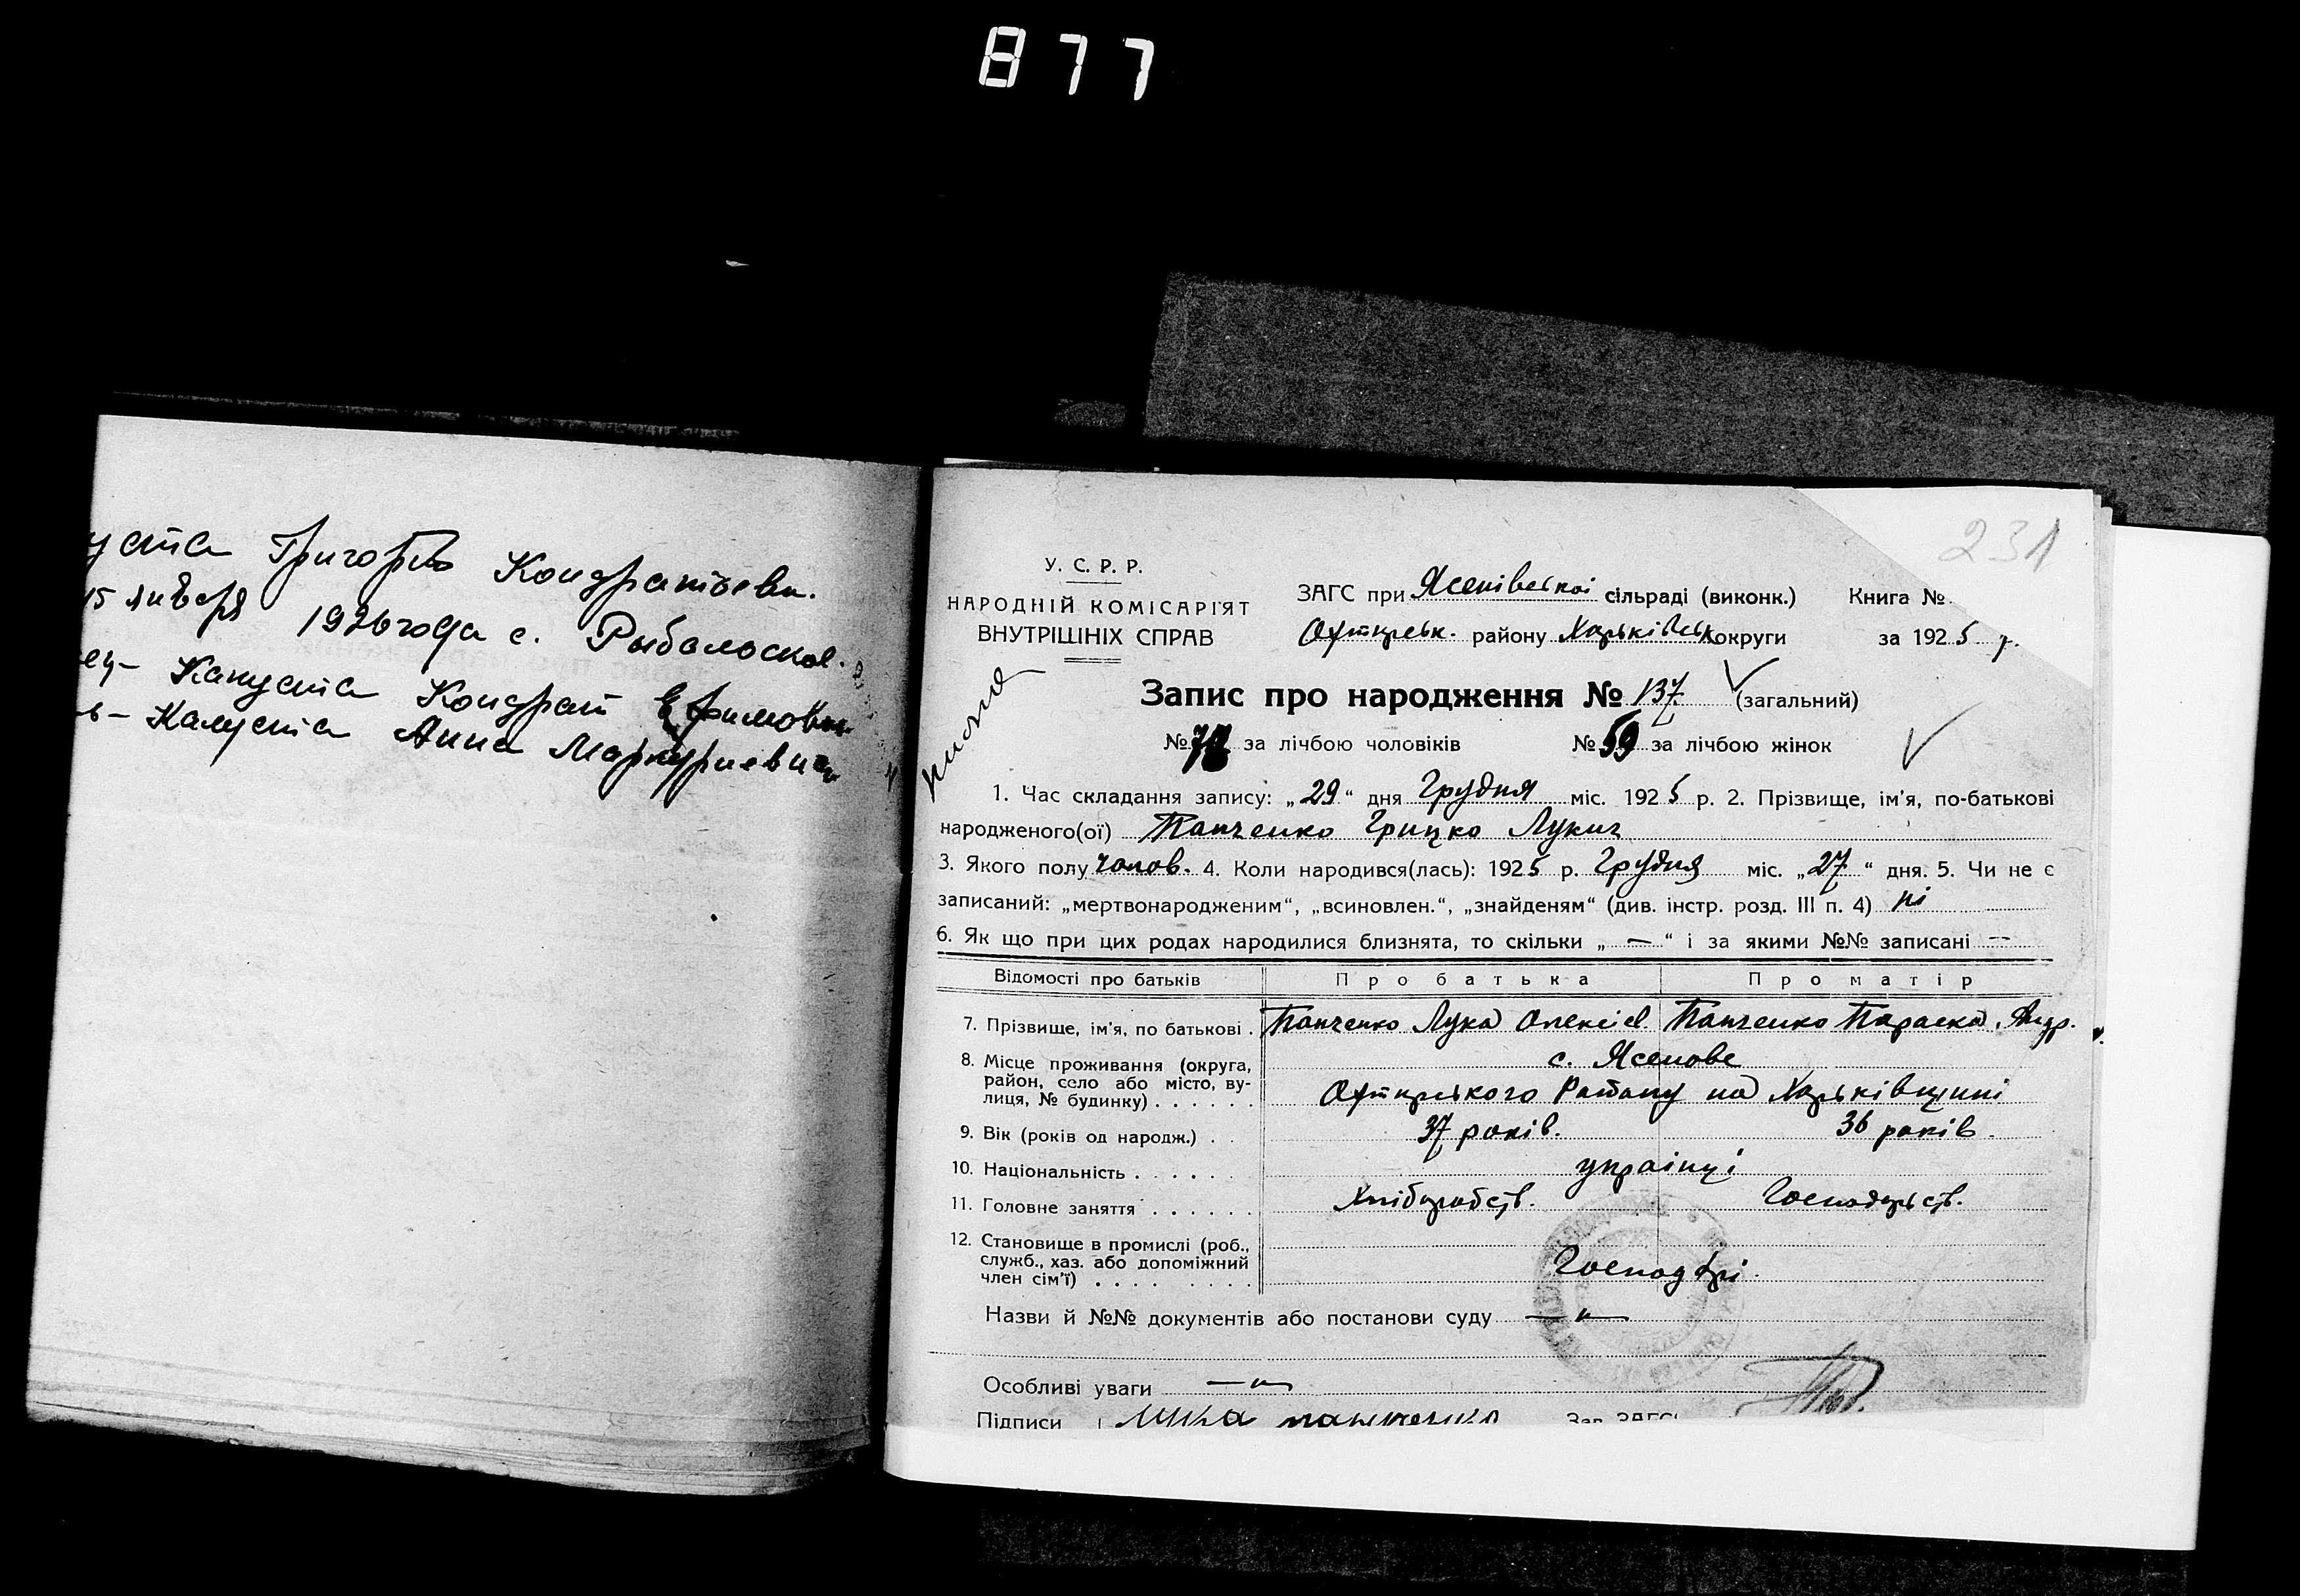 877
Григорій Кондратьеви.
15 января 1926 года с. Рыбалоское.
Капуста Кондрат Ефимович
Капуста Анна Маркуриевна
231
У. С. Р. Р.
НАРОДНІЙ КОМІСАРІЯТ
ВНУТРІШНІХ СПРАВ
ЗАГС при Ясенівської сільраді (виконк.) Книга №
Охтирськ. району Харківськ округи за 1925 р.
Запис про народження № 137. (загальний)
№ 78 за лічбою чоловіків № 59 за лічбою жінок
1. Час складання запису: „29“ дня Грудня міс. 1925 р. 2. Прізвище, ім'я, по-батькові
народженого(ої) Панченко Грицко Лукич
3. Якого полу чолов. 4. Коли народився(лась): 1925 р. Грудня міс. „27“ дня. 5. Чи не є
записаний: „мертвонародженим“, „всиновлен.“, „знайденям“ (див. інстр. розд. III п. 4) ні
6. Як що при цих родах народилися близнята, то скільки „ — “ і за якими №№ записані —
Відомості про батьків Про батька Про матір
7. Прізвище, ім'я, по батькові . Панченко Лука Олексієв. Панченко Параска Андр.
8. Місце проживання (округа, район, село або місто, вулиця, № будинку) . . . . . . с. Ясенове
Охтирського Району на Харьківщині
9. Вік (років од народж.) . . 37 років. 36 років.
10. Національність . . . . . . українці
11. Головне заняття . . . . . . Хліборобств. Господарств.
12. Становище в промислі (роб., служб., хаз. або допоміжний член сім'ї) . . . . . . . . . Господарі
Назви й №№ документів або постанови суду — „ —
Особливі уваги — „ —
Підписи Лука панченко Зав. ЗАГС